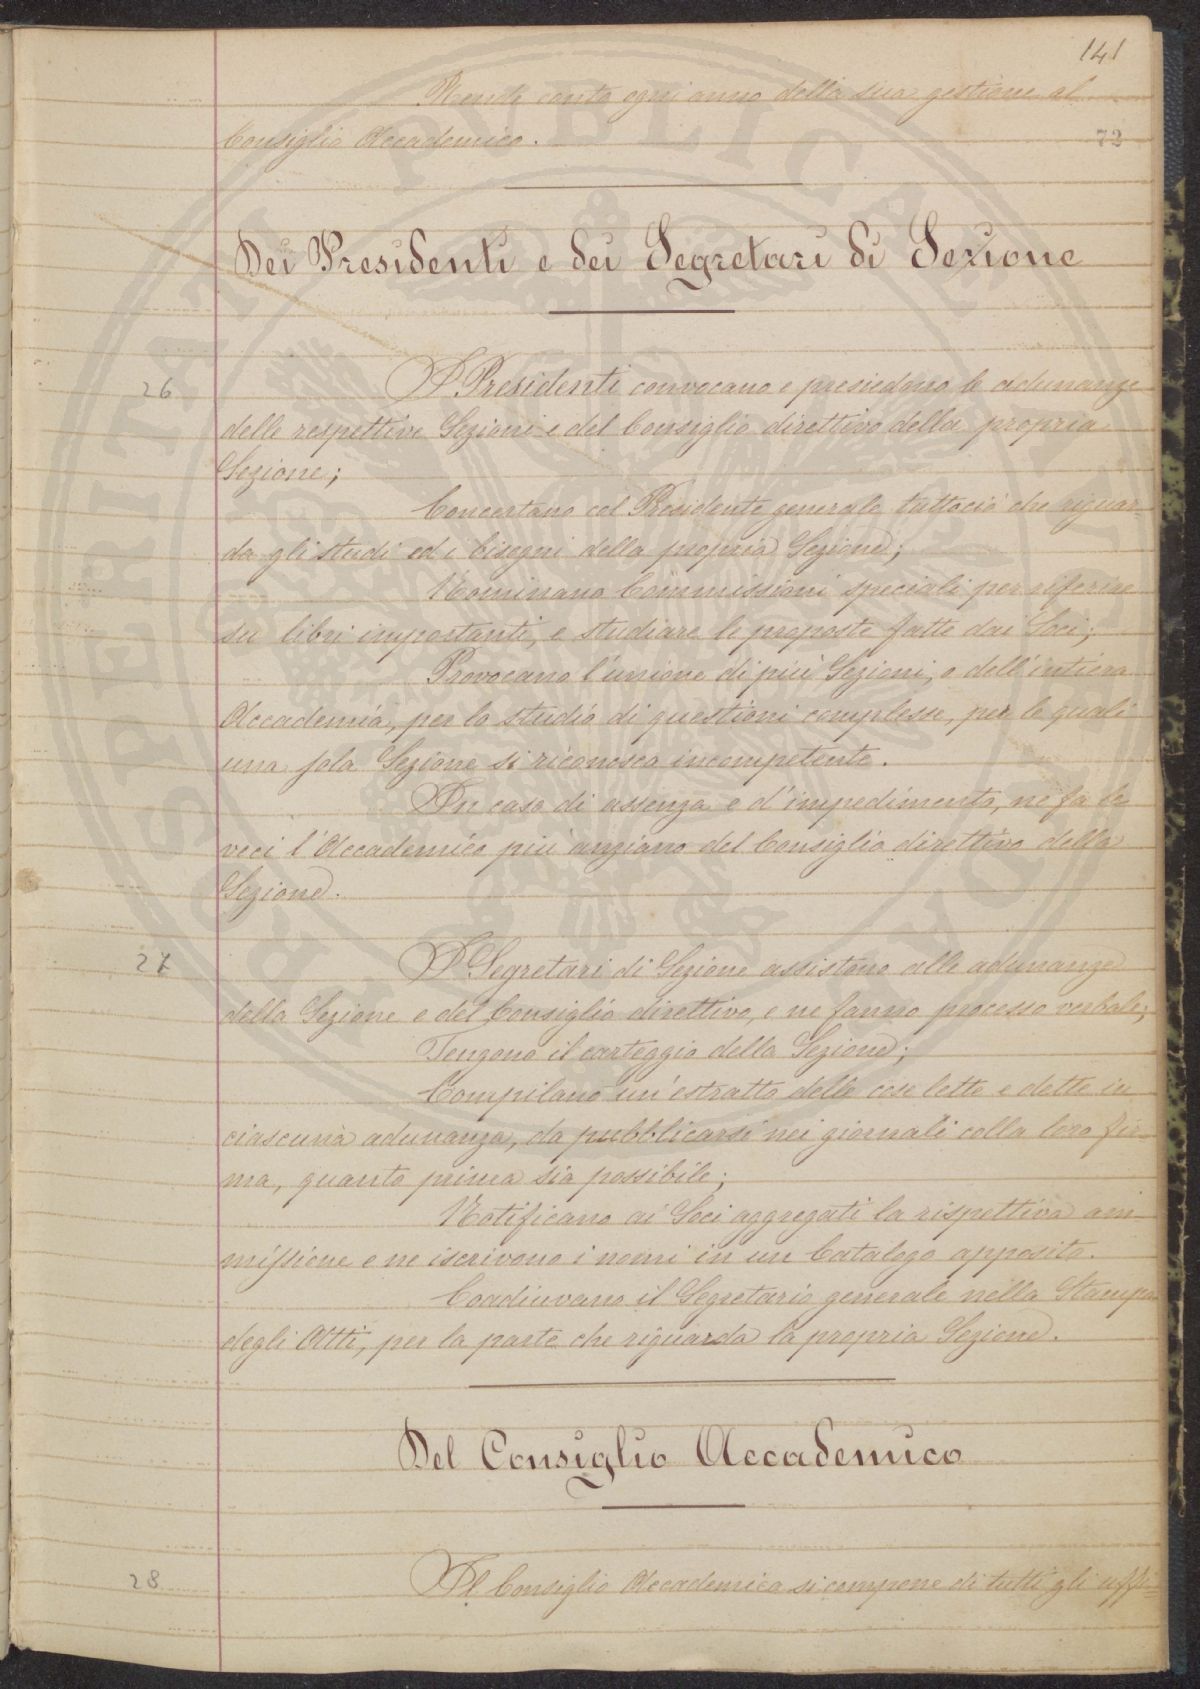 141
Rende conto ogni anno della sua gestione al
Consiglio Accademico.
72
Dei Presidenti e dei Segretari di Sezione
26
I Presidenti convocano e presiedono le adunanze
delle respettive Sezioni e del Consiglio direttivo della propria
Sezione;
Concertano col Presidente generale tuttociò che riguar-
da gli studi ed i bisogni della propria Sezione;
Nominano Commissioni speciali per riferire
su libri importanti, e studiare le proposte fatte dai Soci;
Provocano l'unione di più Sezioni, o dell'intiera
Accademia, per lo studio di questioni complesse, per le quali
una sola Sezione si riconosca incompetente.
In caso di assenza e d'impedimento, ne fa le
veci l'Accademico più anziano del Consiglio direttivo della
Sezione.
27
I Segretari di Sezione assistono alle adunanze
della Sezione e del Consiglio direttivo, e ne fanno processo verbale;
Tengono il carteggio della Sezione;
Compilano un'estratto delle cose lette e dette in
ciascuna adunanza, da pubblicarsi nei giornali colla loro fir-
ma, quanto prima sia possibile;
Notificano ai Soci aggregati la rispettiva am-
missione e ne iscrivono i nomi in un Catalogo apposito.
Coadiuvano il Segretario generale nella Stampa
degli Atti, per la parte che riguarda la propria Sezione.
Del Consiglio Accademico
28
Il Consiglio Accademico si compone di tutti gli uffi-
PROSPERITATI PVBLICAE AVGENDAE